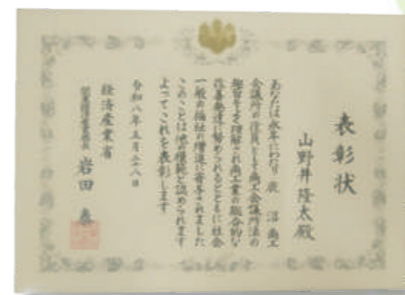 表彰状
山野井隆太殿
あなたは永年にわたり 鹿沼商工
会議所の役員として商工会議所法の
趣旨をよく理解され商工業の総合的な
改善発達に努められるとともに社会
一般の福祉の増進に寄与されました
このことは他の模範と認められます
よってこれを表彰します
令和八年五月二八日
経済産業省
岩田 泰